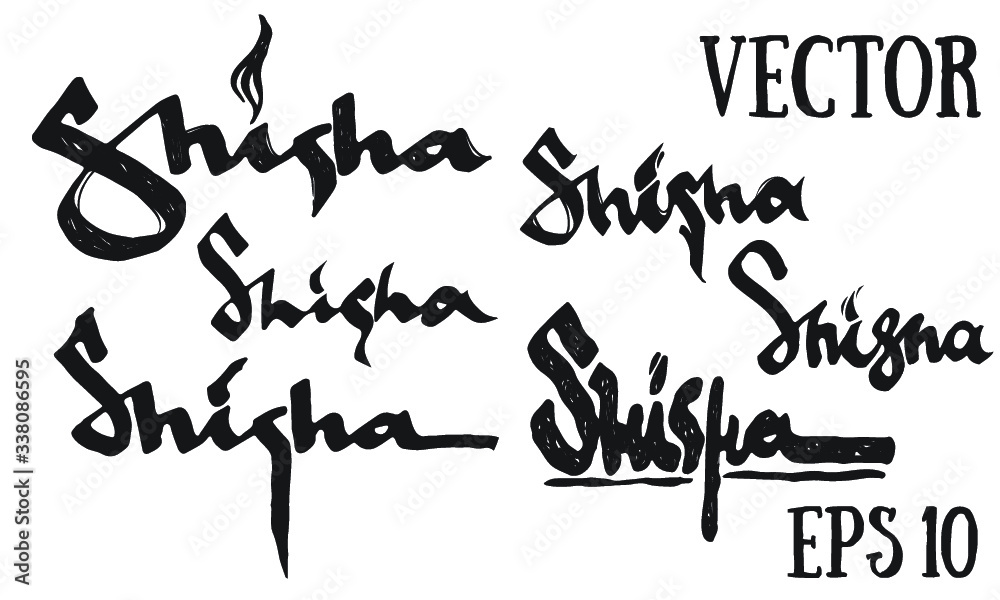 VECTOR
Shisha
Shisha
Shisha
Shisha
Shisha
Shisha
EPS 10
Adobe Stock | #338086595